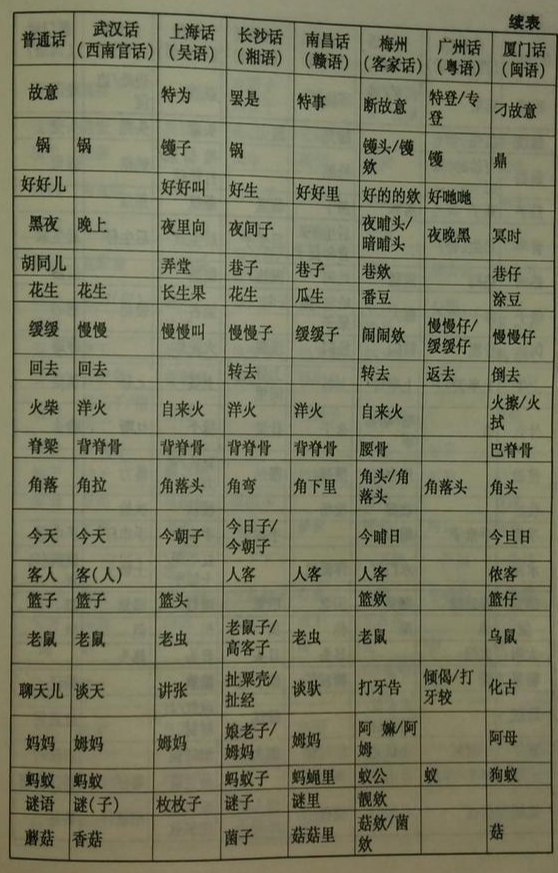 续表
普通话 武汉话（西南官话） 上海话（吴语） 长沙话（湘语） 南昌话（赣语） 梅州（客家话） 广州话（粤语） 厦门话（闽语）
故意 特为 罢是 特事 断故意 特登/专登 刁故意
锅 锅 镬子 锅 镬头/镬欸 镬 鼎
好好儿 好好叫 好生 好好里 好的的欸 好哋哋
黑夜 晚上 夜里向 夜间子 夜晡头/暗晡头 夜晚黑 冥时
胡同儿 弄堂 巷子 巷子 巷欸 巷仔
花生 花生 长生果 花生 瓜生 番豆 涂豆
缓缓 慢慢 慢慢叫 慢慢子 缓缓子 闹闹欸 慢慢仔/缓缓仔 慢慢仔
回去 回去 转去 转去 返去 倒去
火柴 洋火 自来火 洋火 洋火 自来火 火擦/火拭
脊梁 背脊骨 背脊骨 背脊骨 背脊骨 腰骨 巴脊骨
角落 角拉 角落头 角弯 角下里 角头/角落头 角落头 角头
今天 今天 今朝子 今日子/今朝子 今晡日 今旦日
客人 客(人) 人客 人客 人客 侬客
篮子 篮子 篮头 篮欸 篮仔
老鼠 老鼠 老虫 老鼠子/高客子 老虫 老鼠 鸟鼠
聊天儿 谈天 讲张 扯粟壳/扯经 谈驮 打牙告 倾偈/打牙较 化古
妈妈 姆妈 姆妈 娘老子/姆妈 姆妈 阿嫲/阿姆 阿母
蚂蚁 蚂蚁 蚂蚁子 蚂蝇里 蚁公 蚁 狗蚁
谜语 谜(子) 枚枚子 谜子 谜里 靓欸
蘑菇 香菇 菌子 菇菇里 菇欸/菌欸 菇